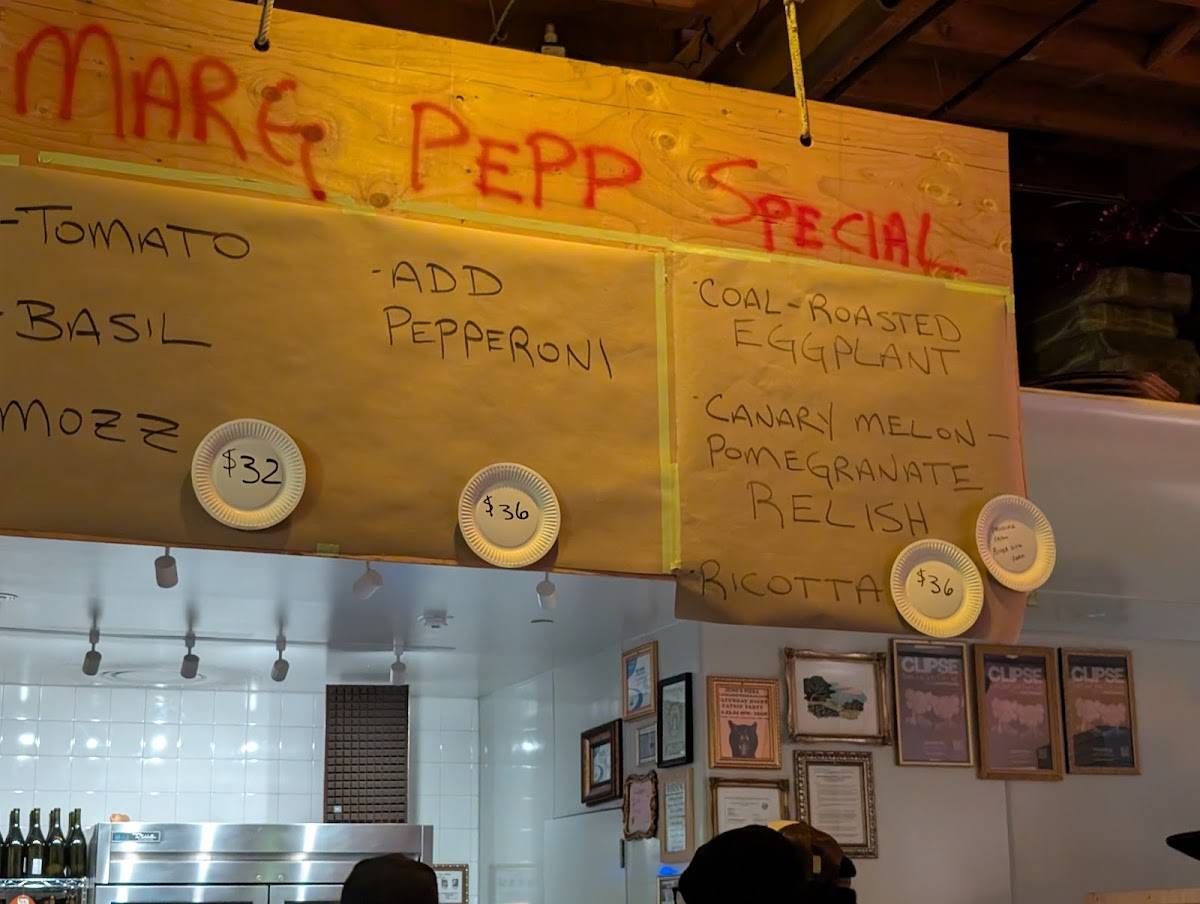 MARG PEPP SPECIAL
-TOMATO
-BASIL
MOZZ
$32
-ADD
PEPPERONI
$36
-COAL-ROASTED
EGGPLANT
-CANARY MELON-
POMEGRANATE
RELISH
-RICOTTA
$36
CLIPSE
CLIPSE
CLIPSE